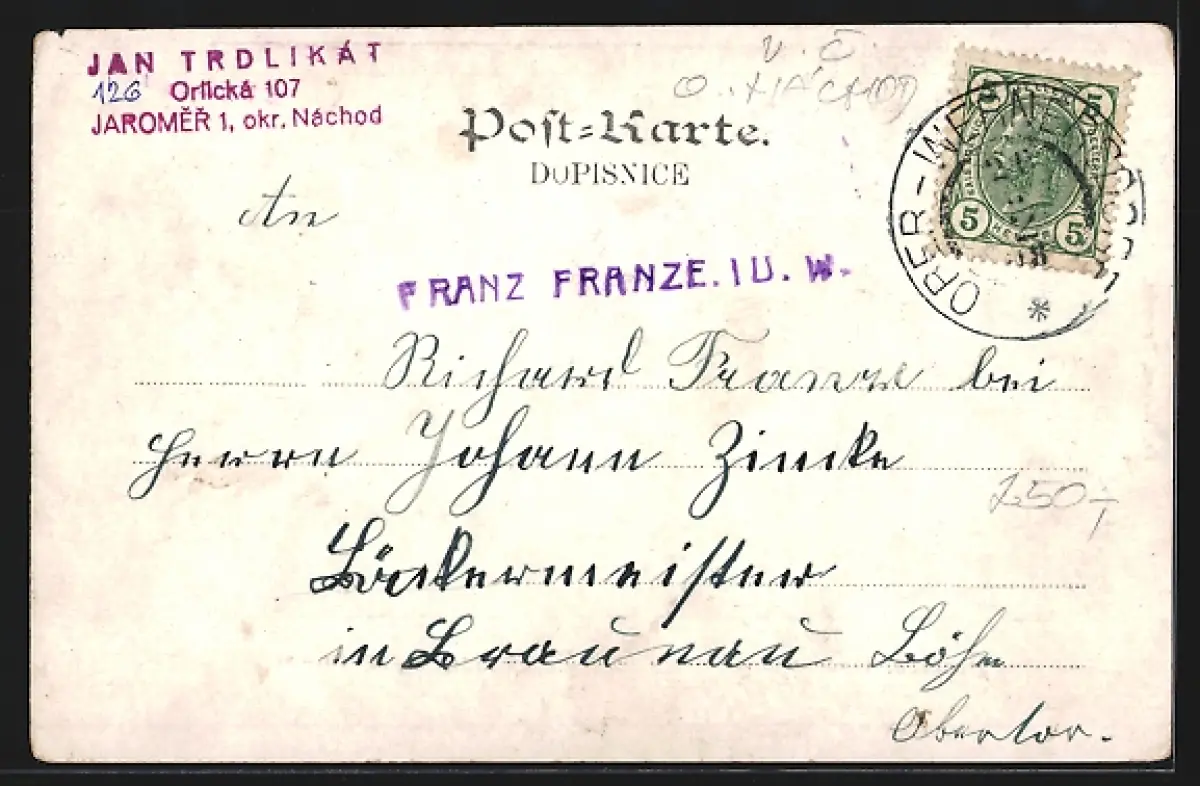 JAN TRDLIKÁT
126 Orlická 107
JAROMĚŘ 1, okr. Náchod
V. Č.
O. NÁCHOD
Post=Karte.
DOPISNICE
5 5
HELLER
OBER-WEKELSDORF
An
FRANZ FRANZE. I U. W.
Richard Franze bei
Herrn Johann Zincke
Bäckermeister
in Braunau Böhm
Obertor.